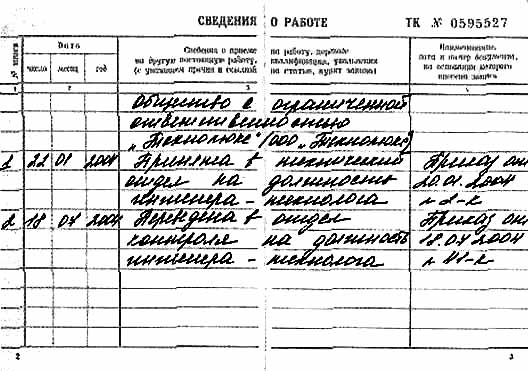 СВЕДЕНИЯ О РАБОТЕ ТК № 0595527
№ записи
Дата
число месяц год
Сведения о приеме на работу, переводе
на другую постоянную работу, квалификации, увольнении
(с указанием причин и ссылкой на статью, пункт закона)
Наименование,
дата и номер документа,
на основании которого
внесена запись
1 2 3 4
Общество с ограниченной
ответственностью
„Технолюкс“ (ООО „Технолюкс“)
1 22 01 2004 Принята в технический Приказ от
отдел на должность 20.01.2004
инженера – технолога n 2-к
2 18 07 2004 Переведена в отдел Приказ от
контроля на должность 18.07.2004
инженера – технолога n 41-к
2 3